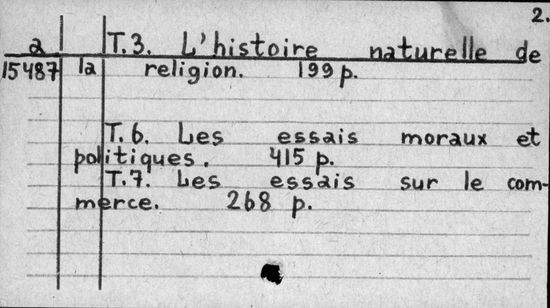 2.
a T.3. L'histoire naturelle de
15487 la religion. 199 p.
T.6. Les essais moraux et
politiques. 415 p.
T.7. Les essais sur le com-
merce. 268 p.